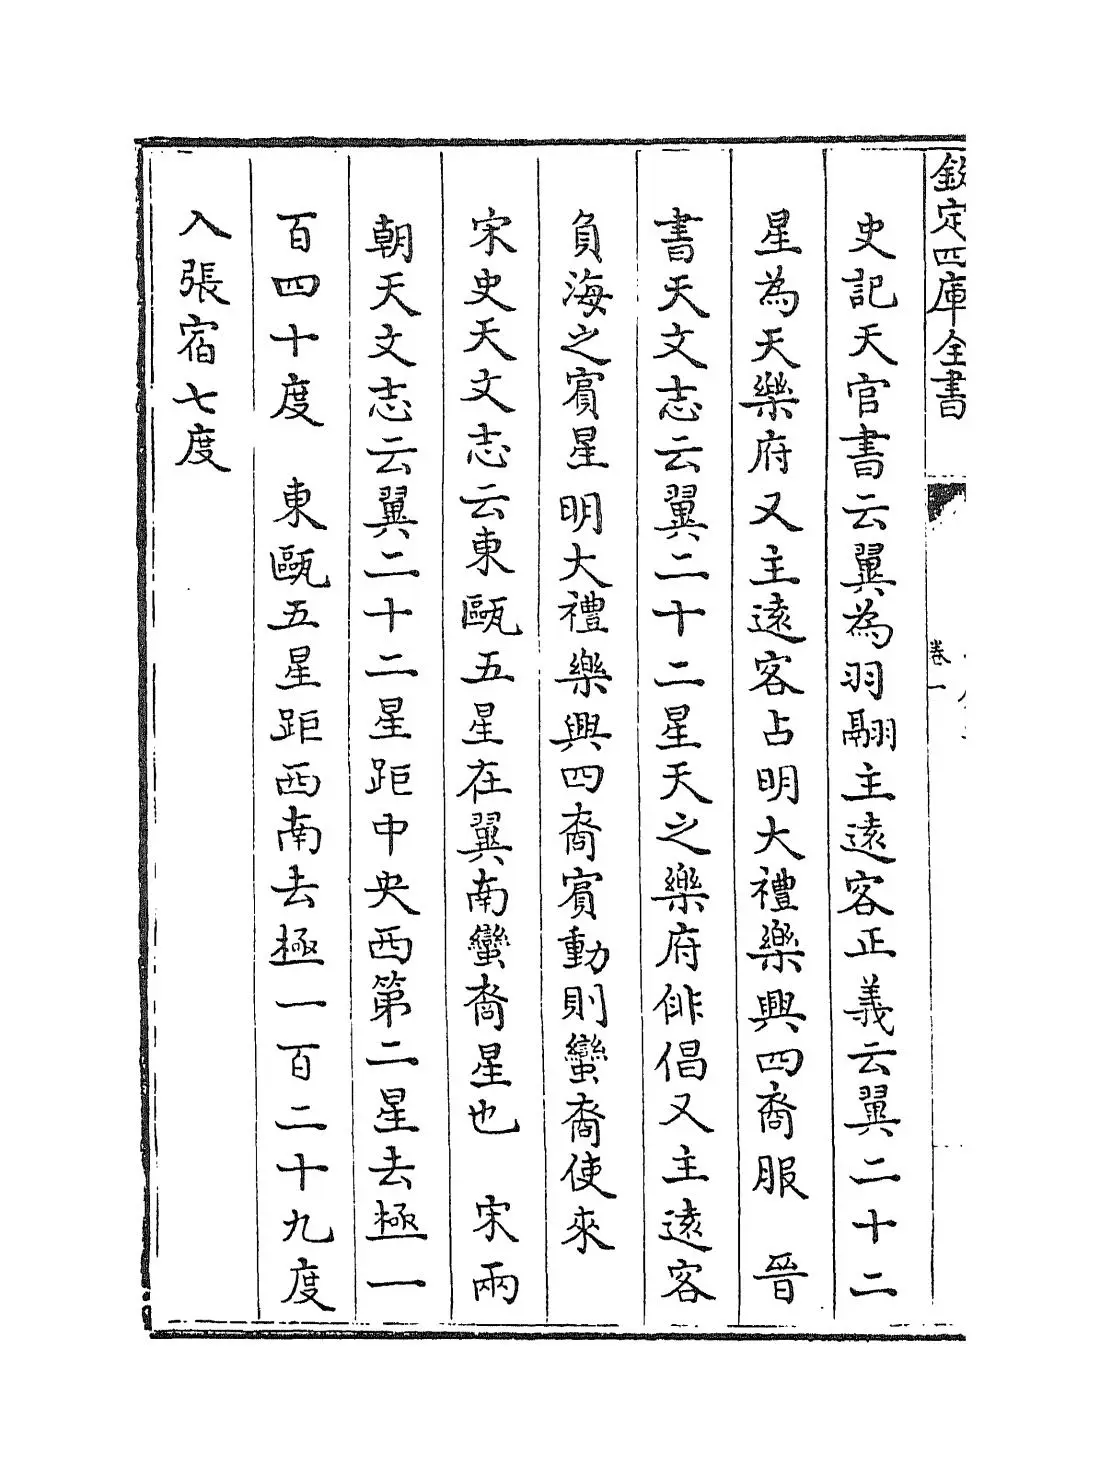 欽定四庫全書
卷一
史記天官書云翼為羽翮主遠客正義云翼二十二
星為天樂府又主遠客占明大禮樂興四裔服　晉
書天文志云翼二十二星天之樂府俳倡又主遠客
負海之賓星明大禮樂興四裔賓動則蠻裔使來
宋史天文志云東甌五星在翼南蠻裔星也　宋兩
朝天文志云翼二十二星距中央西第二星去極一
百四十度　東甌五星距西南去極一百二十九度
入張宿七度